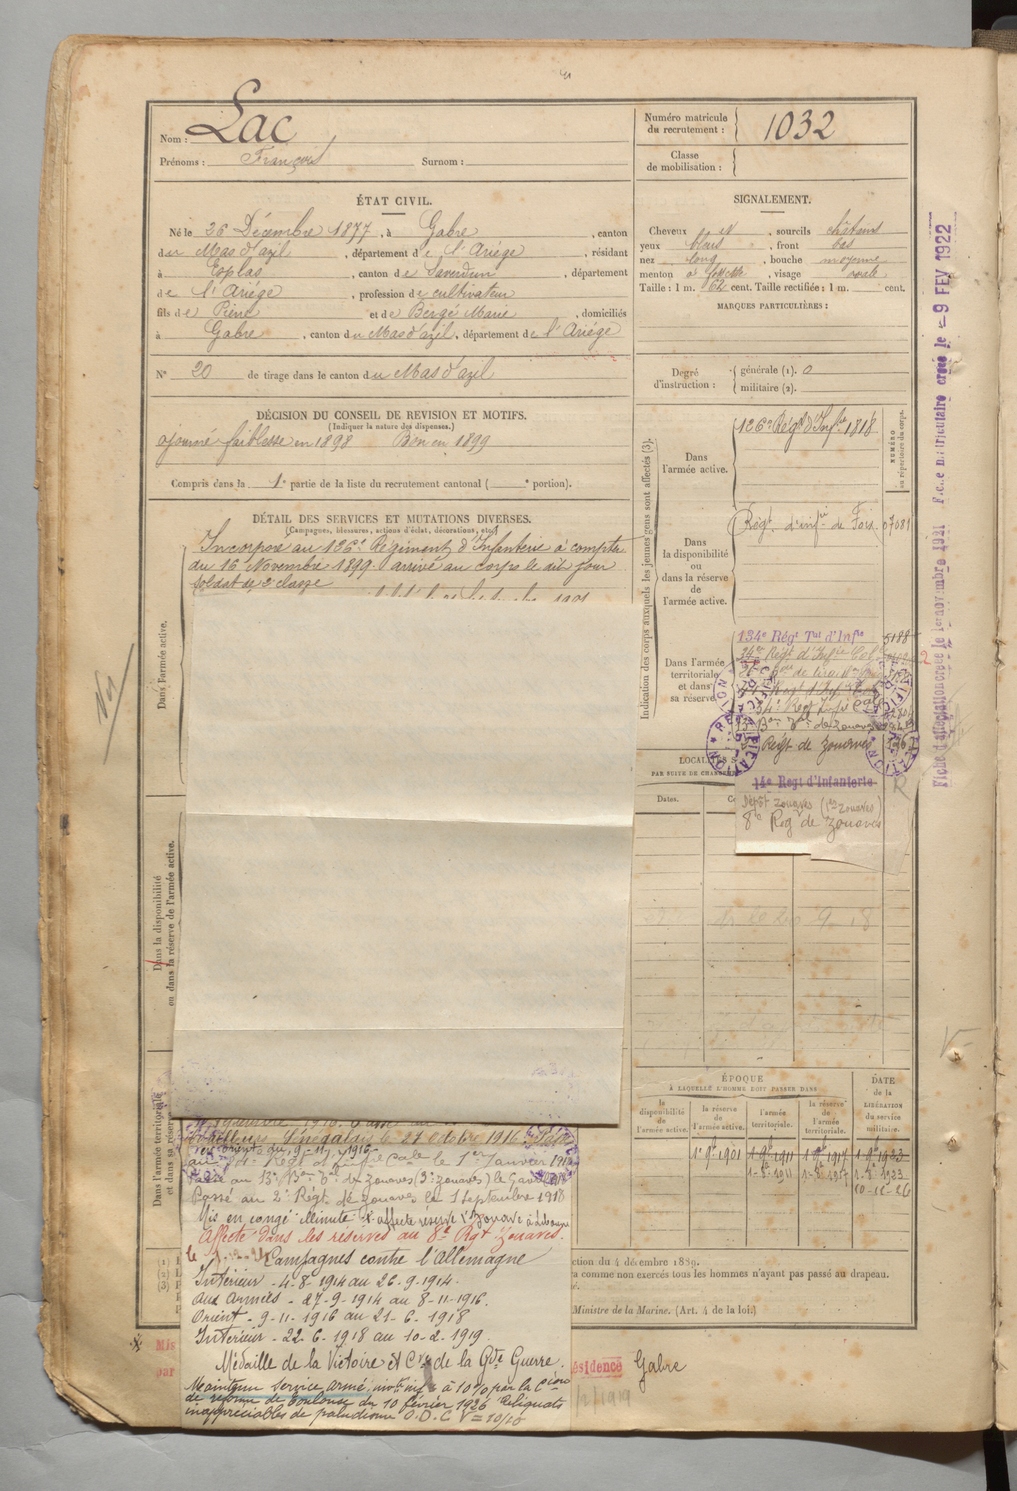 Nom : Lac
Prénoms : François Surnom :
Numéro matricule
du recrutement : 1032
Classe
de mobilisation :
ÉTAT CIVIL.
Né le 26 Décembre 1877, à Gabre, canton
du Mas d'azil, département de l'Ariège, résidant
à Esplas, canton de Saverdun, département
de l'Ariège, profession de cultivateur
fils de Pierre et de Bergé Marie, domiciliés
à Gabre, canton du Mas d'azil, département de l'Ariège
N° 20 de tirage dans le canton du Mas d'azil
SIGNALEMENT.
Cheveux et, sourcils châtains
yeux bleus, front bas
nez long, bouche moyenne
menton à fossette, visage ovale
Taille : 1 m. 62 cent. Taille rectifiée : 1 m. cent.
MARQUES PARTICULIÈRES :
Degré
d'instruction :
générale (1). 0
militaire (2).
DÉCISION DU CONSEIL DE REVISION ET MOTIFS.
(Indiquer la nature des dispenses.)
ajourné faiblesse en 1898 Bon en 1899
Compris dans la 1e partie de la liste du recrutement cantonal ( e portion).
DÉTAIL DES SERVICES ET MUTATIONS DIVERSES.
(Campagnes, blessures, actions d'éclat, décorations, etc.)
Incorporé au 126e Régiment d'Infanterie à compter
du 16 Novembre 1899. arrivé au corps le dit jour
soldat de 2e classe
Dans l'armée active.
Dans la disponibilité
ou dans la réserve de l'armée active.
Dans l'armée territoriale
et dans sa réserve
Indication des corps auxquels les jeunes gens sont affectés (3).
NUMÉRO
au répertoire du corps.
Dans
l'armée active.
126e Régt d'Infie 1818
Dans
la disponibilité
ou
dans la réserve
de
l'armée active.
Régt d'infie de Foix 07681
Dans l'armée
territoriale
et dans
sa réserve
134e Régt Tal d'Infie 5188
34e Régt d'Infie Cole
13e Bon 3e de Zouaves
Régt de Zouaves
14e Régt d'Infanterie
Dépôt Zouaves (1er Zouaves)
8e Reg de Zouaves
R
LOCALITÉS
PAR SUITE DE
Dates.
ÉPOQUE
À LAQUELLE L'HOMME DOIT PASSER DANS
la
disponibilité
de
l'armée active.
la réserve
de
l'armée active.
l'armée
territoriale.
la réserve
de
l'armée
territoriale.
DATE
de la
LIBÉRATION
du service
militaire.
1e 9bre 1901 1e 9bre 1911 1e 9bre 1917 1e 9bre 1923
10-11-26
Tirailleurs Sénégalais le 27 Octobre 1916
au 34e Régt d'Infie Cale le 1er Janvier 1918
Passé au 13e Bon 3e de Zouaves (3e zouaves) le 6 avril 1918
Passé au 2e Régt de Zouaves le 1 septembre 1918
Mis en congé illimité affecté réserve
Affecté dans les réserves au 8e Rgt Zouaves.
Campagnes contre l'Allemagne
Intérieur - 4-8-1914 au 26-9-1914.
Aux Armées - 27-9-1914 au 8-11-1916.
Orient - 9-11-1916 au 21-6-1918
Intérieur - 22-6-1918 au 10-2-1919.
Médaille de la Victoire et Cve de la Gde Guerre.
Maintenu service armé, invté infre à 10% par la Cion
de réforme de Toulouse du 10 février 1926 Reliquats
inappréciables de paludisme O.D.C V = 10/10
ction du 4 décembre 1889.
a comme non exercés tous les hommes n'ayant pas passé au drapeau.
Ministre de la Marine. (Art. 4 de la loi.)
Mis
par
ésidence Gabre
/2/1919
Fiche d'affectation créée le 1er novembre 1921 F.c.e matriculaire créée le - 9 FEV 1922